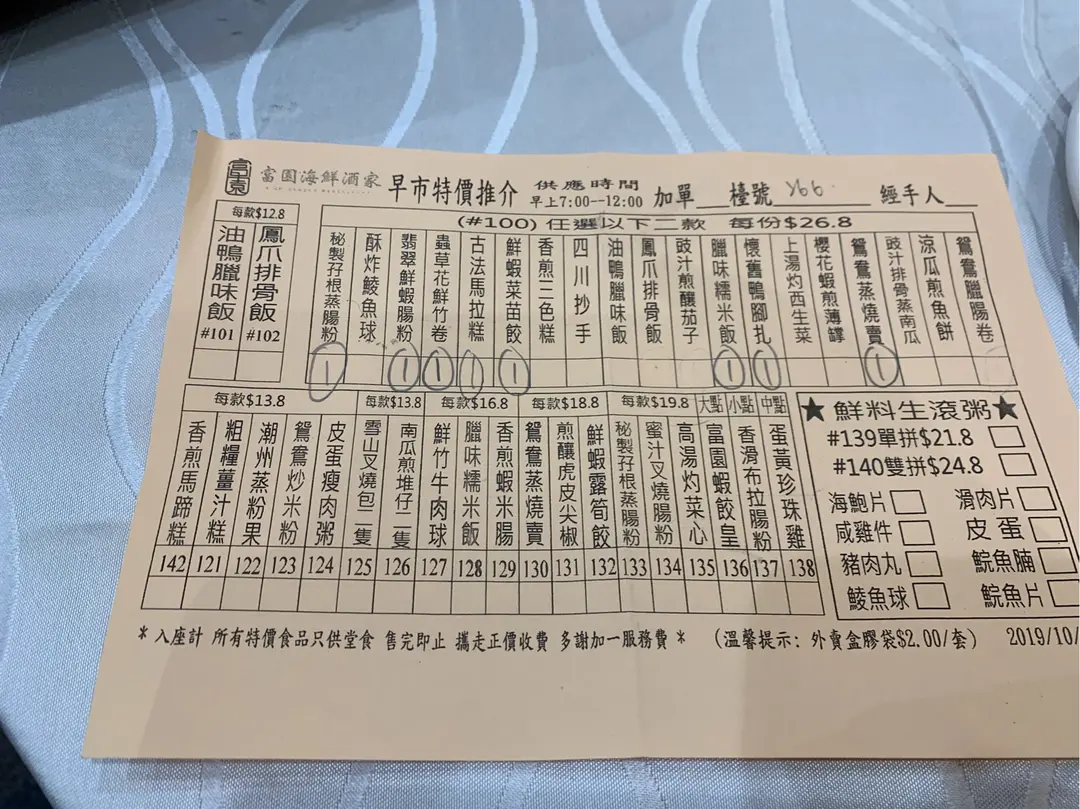 富園
富園海鮮酒家 早市特價推介 供應時間 早上7:00--12:00 加單 檯號 y66 經手人
每款$12.8
油鴨臘味飯 #101
鳳爪排骨飯 #102
(#100) 任選以下二款 每份$26.8
秘製孖根蒸腸粉 1
酥炸鯪魚球
翡翠鮮蝦腸粉 1
蟲草花鮮竹卷 1
古法馬拉糕 1
鮮蝦菜苗餃 1
香煎三色糕
四川抄手
油鴨臘味飯
鳳爪排骨飯
豉汁煎釀茄子
臘味糯米飯 1
懷舊鴨腳扎 1
上湯灼西生菜
櫻花蝦煎薄罉
鴛鴦蒸燒賣 1
豉汁排骨蒸南瓜
涼瓜煎魚餅
鴛鴦臘腸卷
每款$13.8
香煎馬蹄糕 142
粗糧薑汁糕 121
潮州蒸粉果 122
鴛鴦炒米粉 123
皮蛋瘦肉粥 124
每款$13.8
雪山叉燒包二隻 125
南瓜煎堆仔二隻 126
每款$16.8
鮮竹牛肉球 127
臘味糯米飯 128
香煎蝦米腸 129
每款$18.8
鴛鴦蒸燒賣 130
煎釀虎皮尖椒 131
鮮蝦露筍餃 132
每款$19.8
秘製孖根蒸腸粉 133
蜜汁叉燒腸粉 134
大點
高湯灼菜心 135
小點
富園蝦餃皇 136
中點
香滑布拉腸粉 137
蛋黃珍珠雞 138
★鮮料生滾粥★
#139單拼$21.8
#140雙拼$24.8
海鮑片 滑肉片
咸雞件 皮蛋
豬肉丸 鯇魚腩
鯪魚球 鯇魚片
* 入座計 所有特價食品只供堂食 售完即止 攜走正價收費 多謝加一服務費 * (溫馨提示: 外賣盒膠袋$2.00/套) 2019/10/